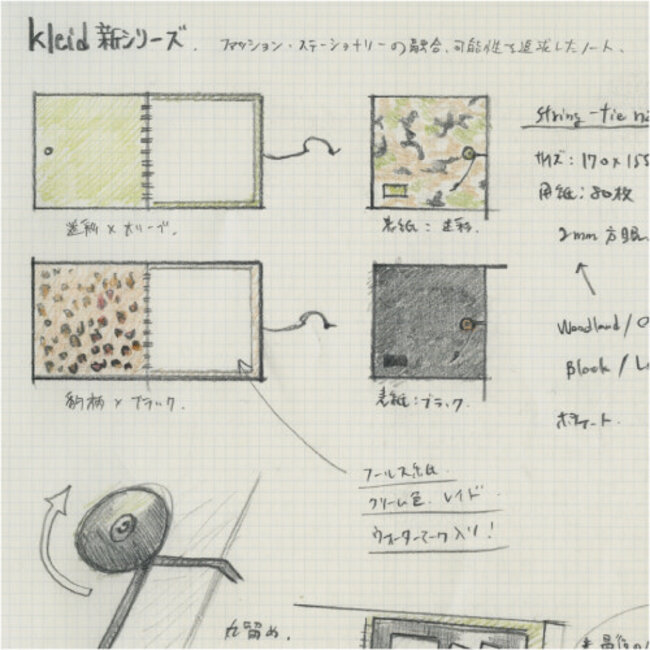 kleid 新シリーズ.
ファッション・ステーショナリーの融合、可能性を追求したノート.
String-tie
サイズ: 170 x 155
用紙: 80枚
2mm 方眼
迷彩 × オリーブ.
表紙: 迷彩.
Woodland / O
Black / L
豹柄 × ブラック.
表紙: ブラック.
フールス紙
クリーム色. レイド.
ウォーターマーク入り!
丸留め.